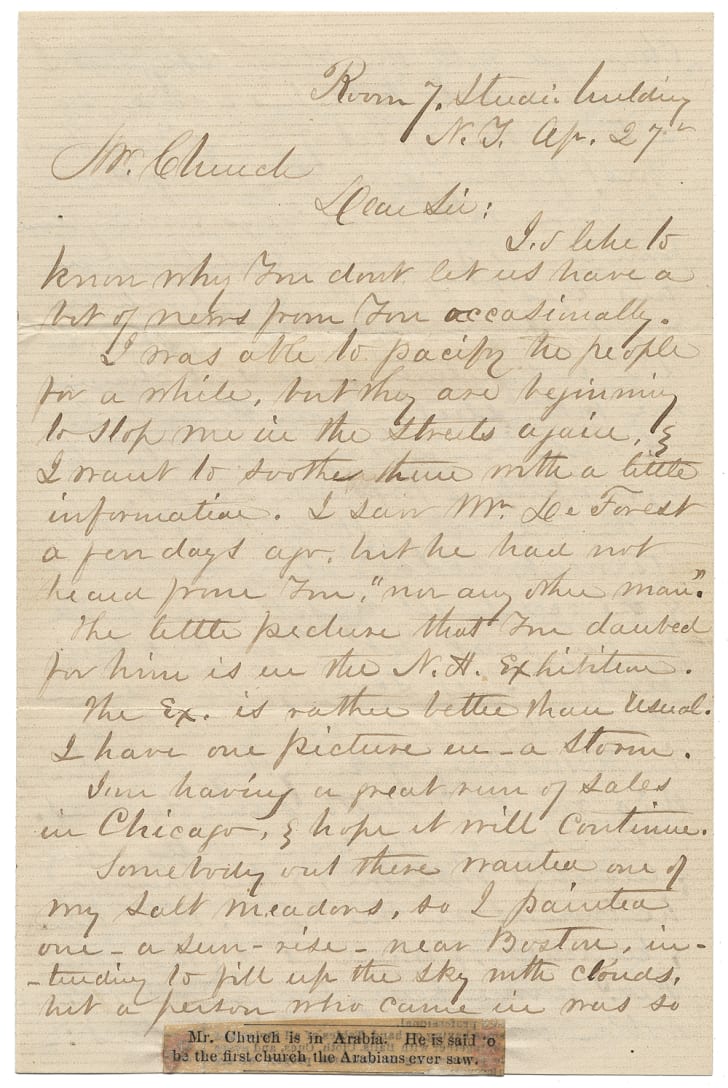 Room 7. Studio building
N.Y. Ap. 27th
Mr. Church
Dear Sir:
I'd like to
know why You dont let us have a
bit of news from You occasionally.
I was able to pacify the people
for a while, but they are beginning
to stop me in the streets again, &
I want to soothe them with a little
information. I saw Mr. De Forest
a few days ago, but he had not
heard from You, "nor any other man".
The little picture that You daubed
for him is in the N.A. Exhibition.
The Ex. is rather better than usual.
I have one picture in - a Storm.
I am having a great run of sales
in Chicago, & hope it will continue.
Somebody out there wanted one of
my salt meadows, so I painted
one - a sun-rise - near Boston, in-
-tending to fill up the sky with clouds,
but a person who came in was so
Mr. Church is in Arabia. He is said to
be the first church the Arabians ever saw.